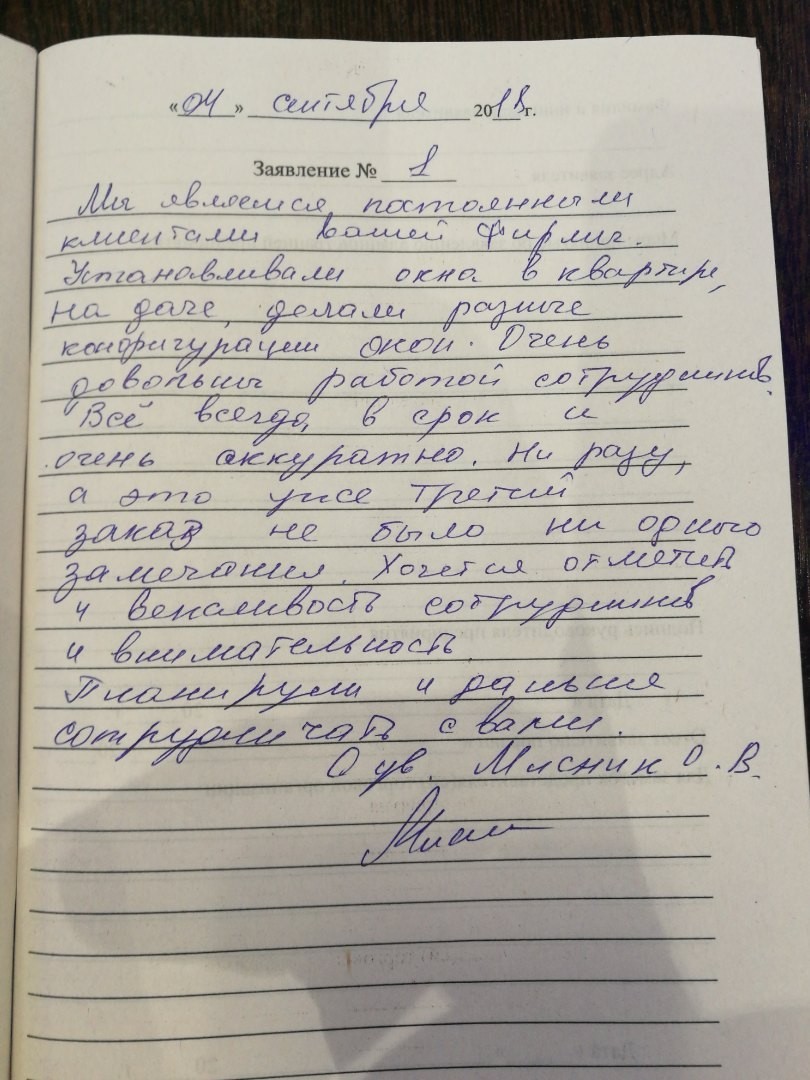 «04» сентября 2018 г.
Заявление № 1
Мы являемся постоянными
клиентами вашей фирмы.
Устанавливали окна в квартире,
на даче, делали разные
конфигурации окон. Очень
довольны работой сотрудников.
Всё всегда, в срок и
очень аккуратно. Ни разу,
а это уже третий
заказ не было ни одного
замечания. Хочется отметить
и вежливость сотрудников
и внимательность.
Планируем и дальше
сотрудничать с вами.
С ув. Мисник О.В.